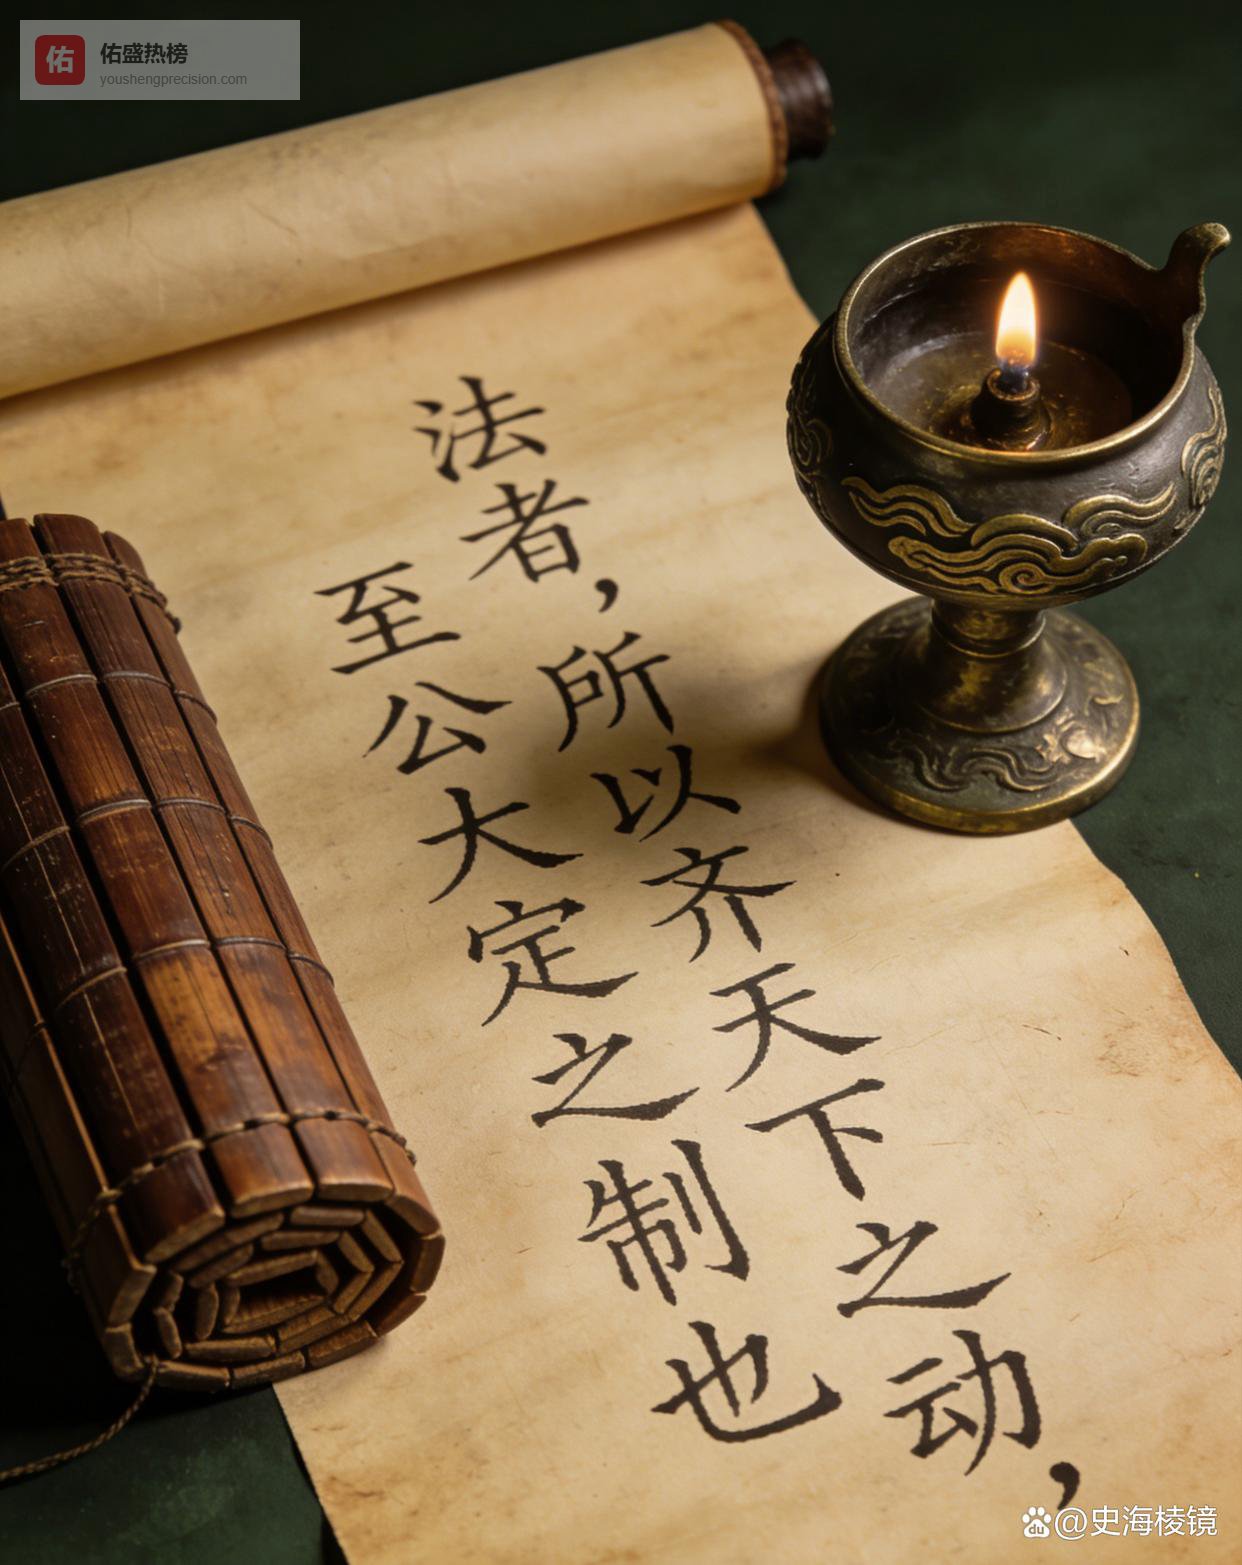 佑
佑盛热榜
youshengprecision.com
法者，所以齐天下之动，
至公大定之制也
@史海棱镜